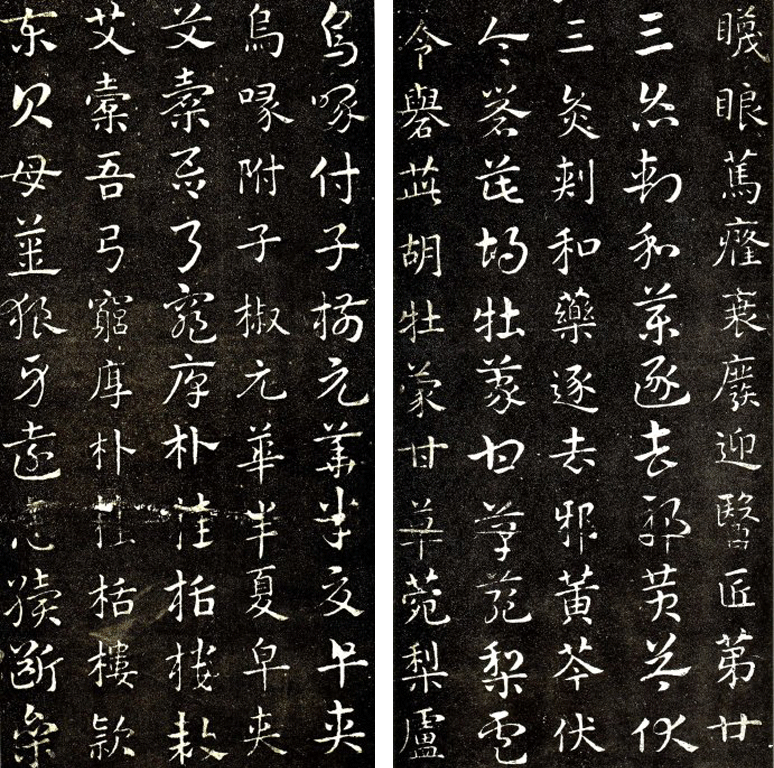 䁾眼篤癃衰廢迎醫匠第廿
三灸刺和藥逐去邪黃芩伏
三灸刺和藥逐去邪黃芩伏
令礜茈胡牡蒙甘草菀梨盧
令礜茈胡牡蒙甘草菀梨盧
烏喙付子椒元華半夏皁夾
烏喙附子椒元華半夏皁夾
艾橐吾弓窮厚朴桂栝樓款
艾橐吾弓窮厚朴桂栝樓款
東貝母薑狼牙遠志續斷參